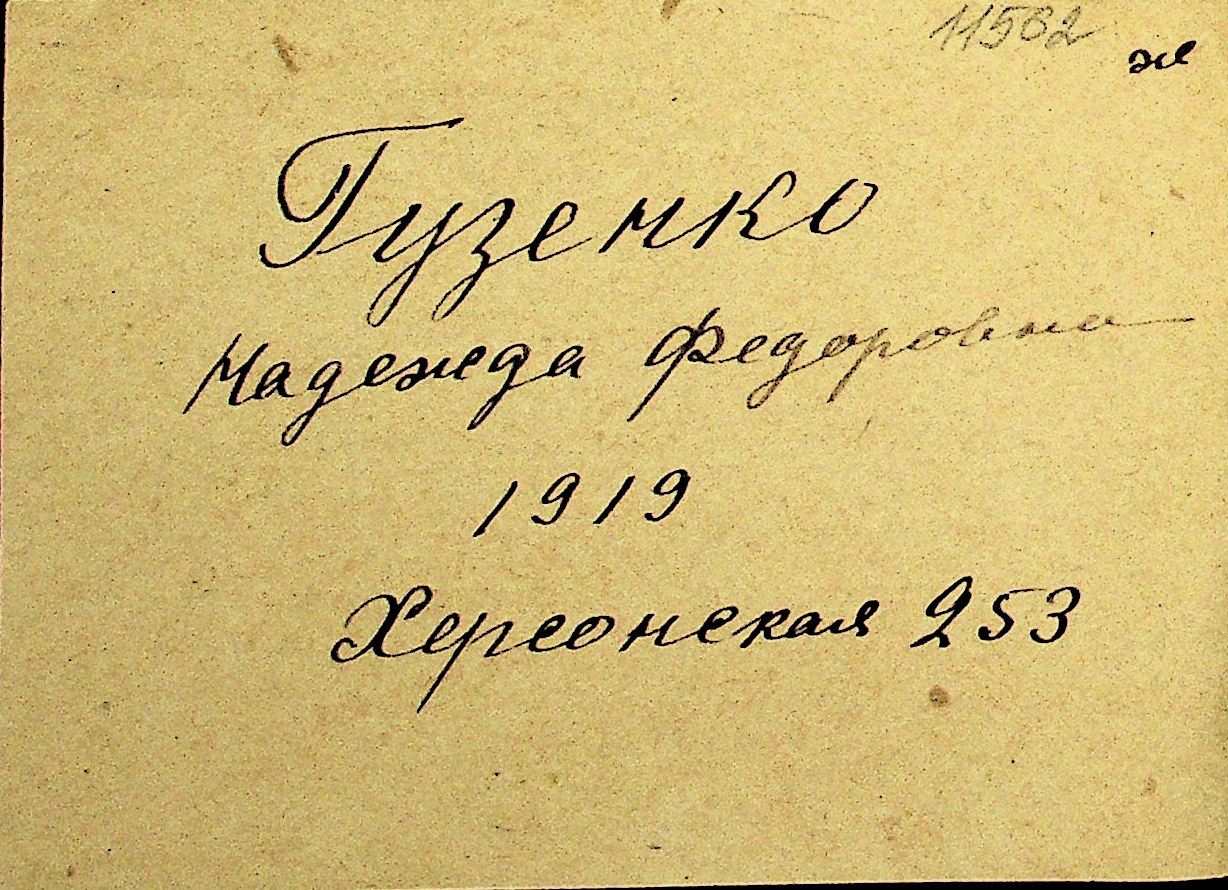 11562
ж
Гузенко
Надежда Федоровна
1919
Херсонская 253